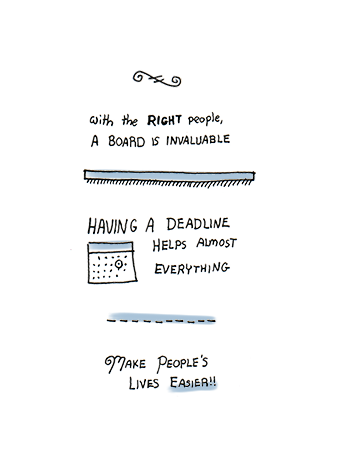 with the RIGHT people,
A BOARD IS INVALUABLE
HAVING A DEADLINE
HELPS ALMOST
EVERYTHING
MAKE PEOPLE'S
LIVES EASIER!!